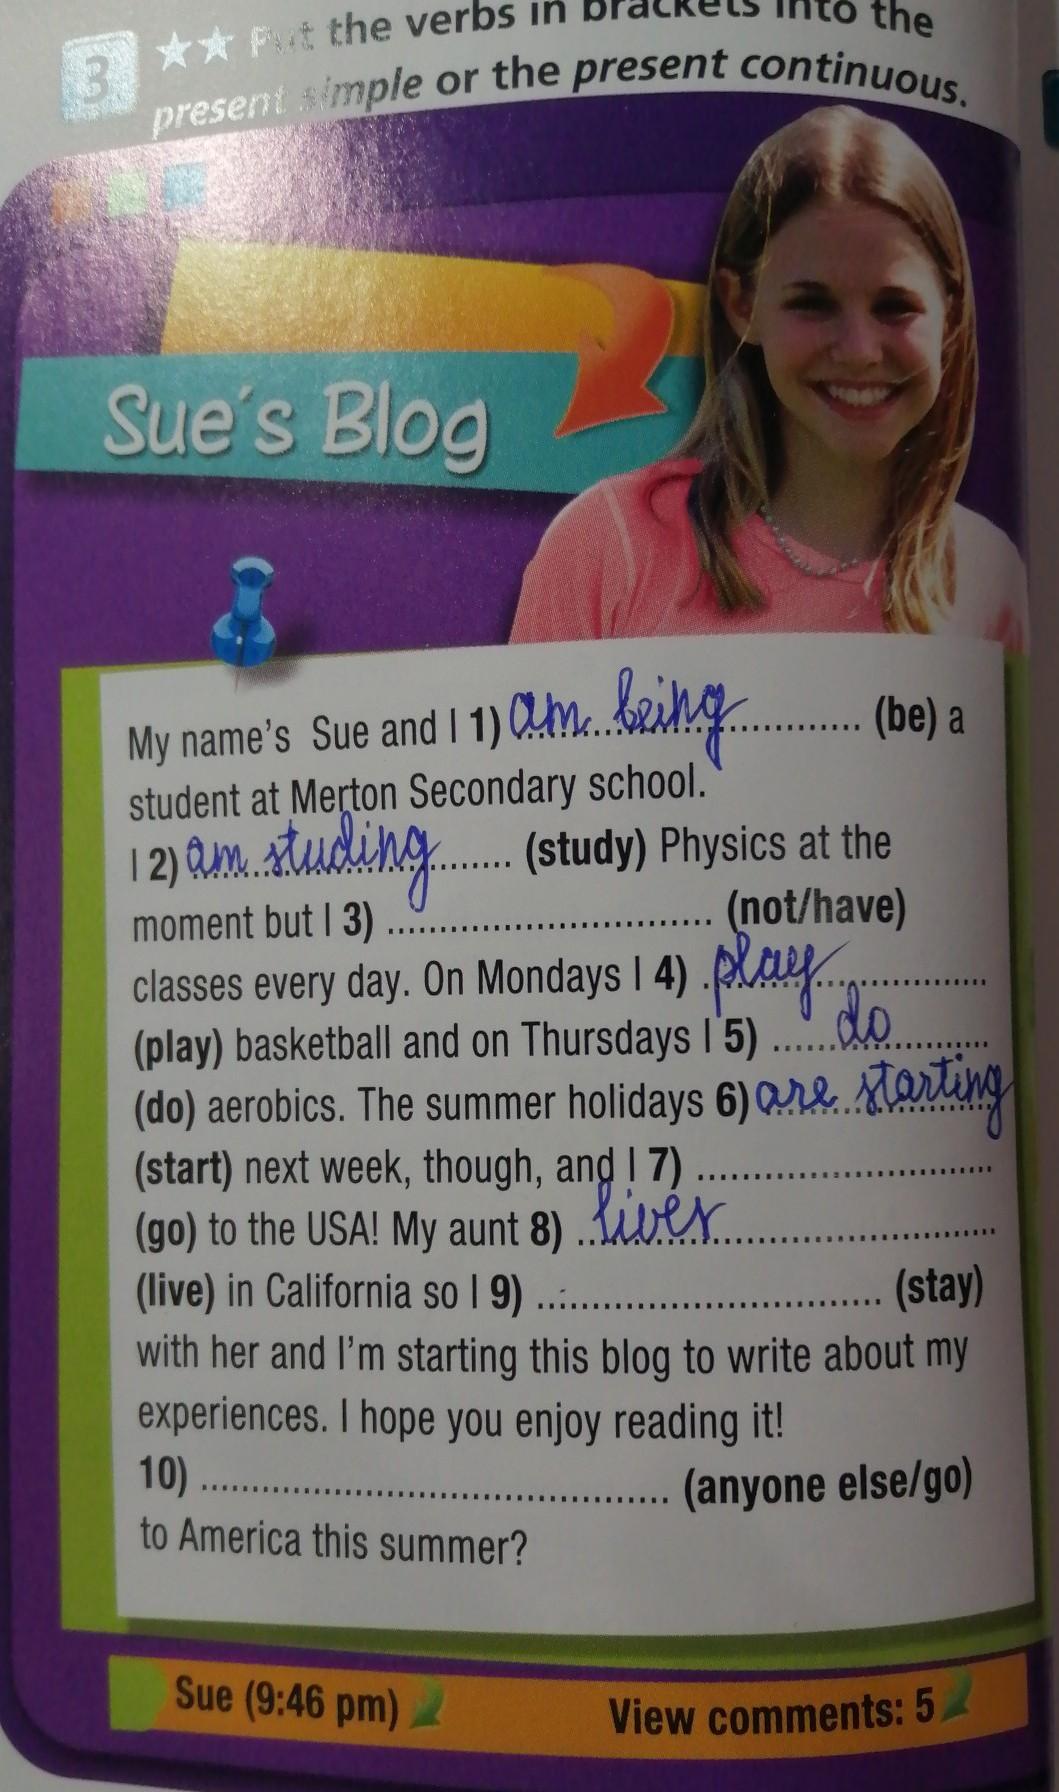 3 ★★ Put the verbs in brackets into the
present simple or the present continuous.
Sue's Blog
My name's Sue and I 1) am being (be) a
student at Merton Secondary school.
I 2) am studing (study) Physics at the
moment but I 3) .......... (not/have)
classes every day. On Mondays I 4) play
(play) basketball and on Thursdays I 5) do
(do) aerobics. The summer holidays 6) are starting
(start) next week, though, and I 7) ..........
(go) to the USA! My aunt 8) lives
(live) in California so I 9) .......... (stay)
with her and I'm starting this blog to write about my
experiences. I hope you enjoy reading it!
10) .......... (anyone else/go)
to America this summer?
Sue (9:46 pm) View comments: 5